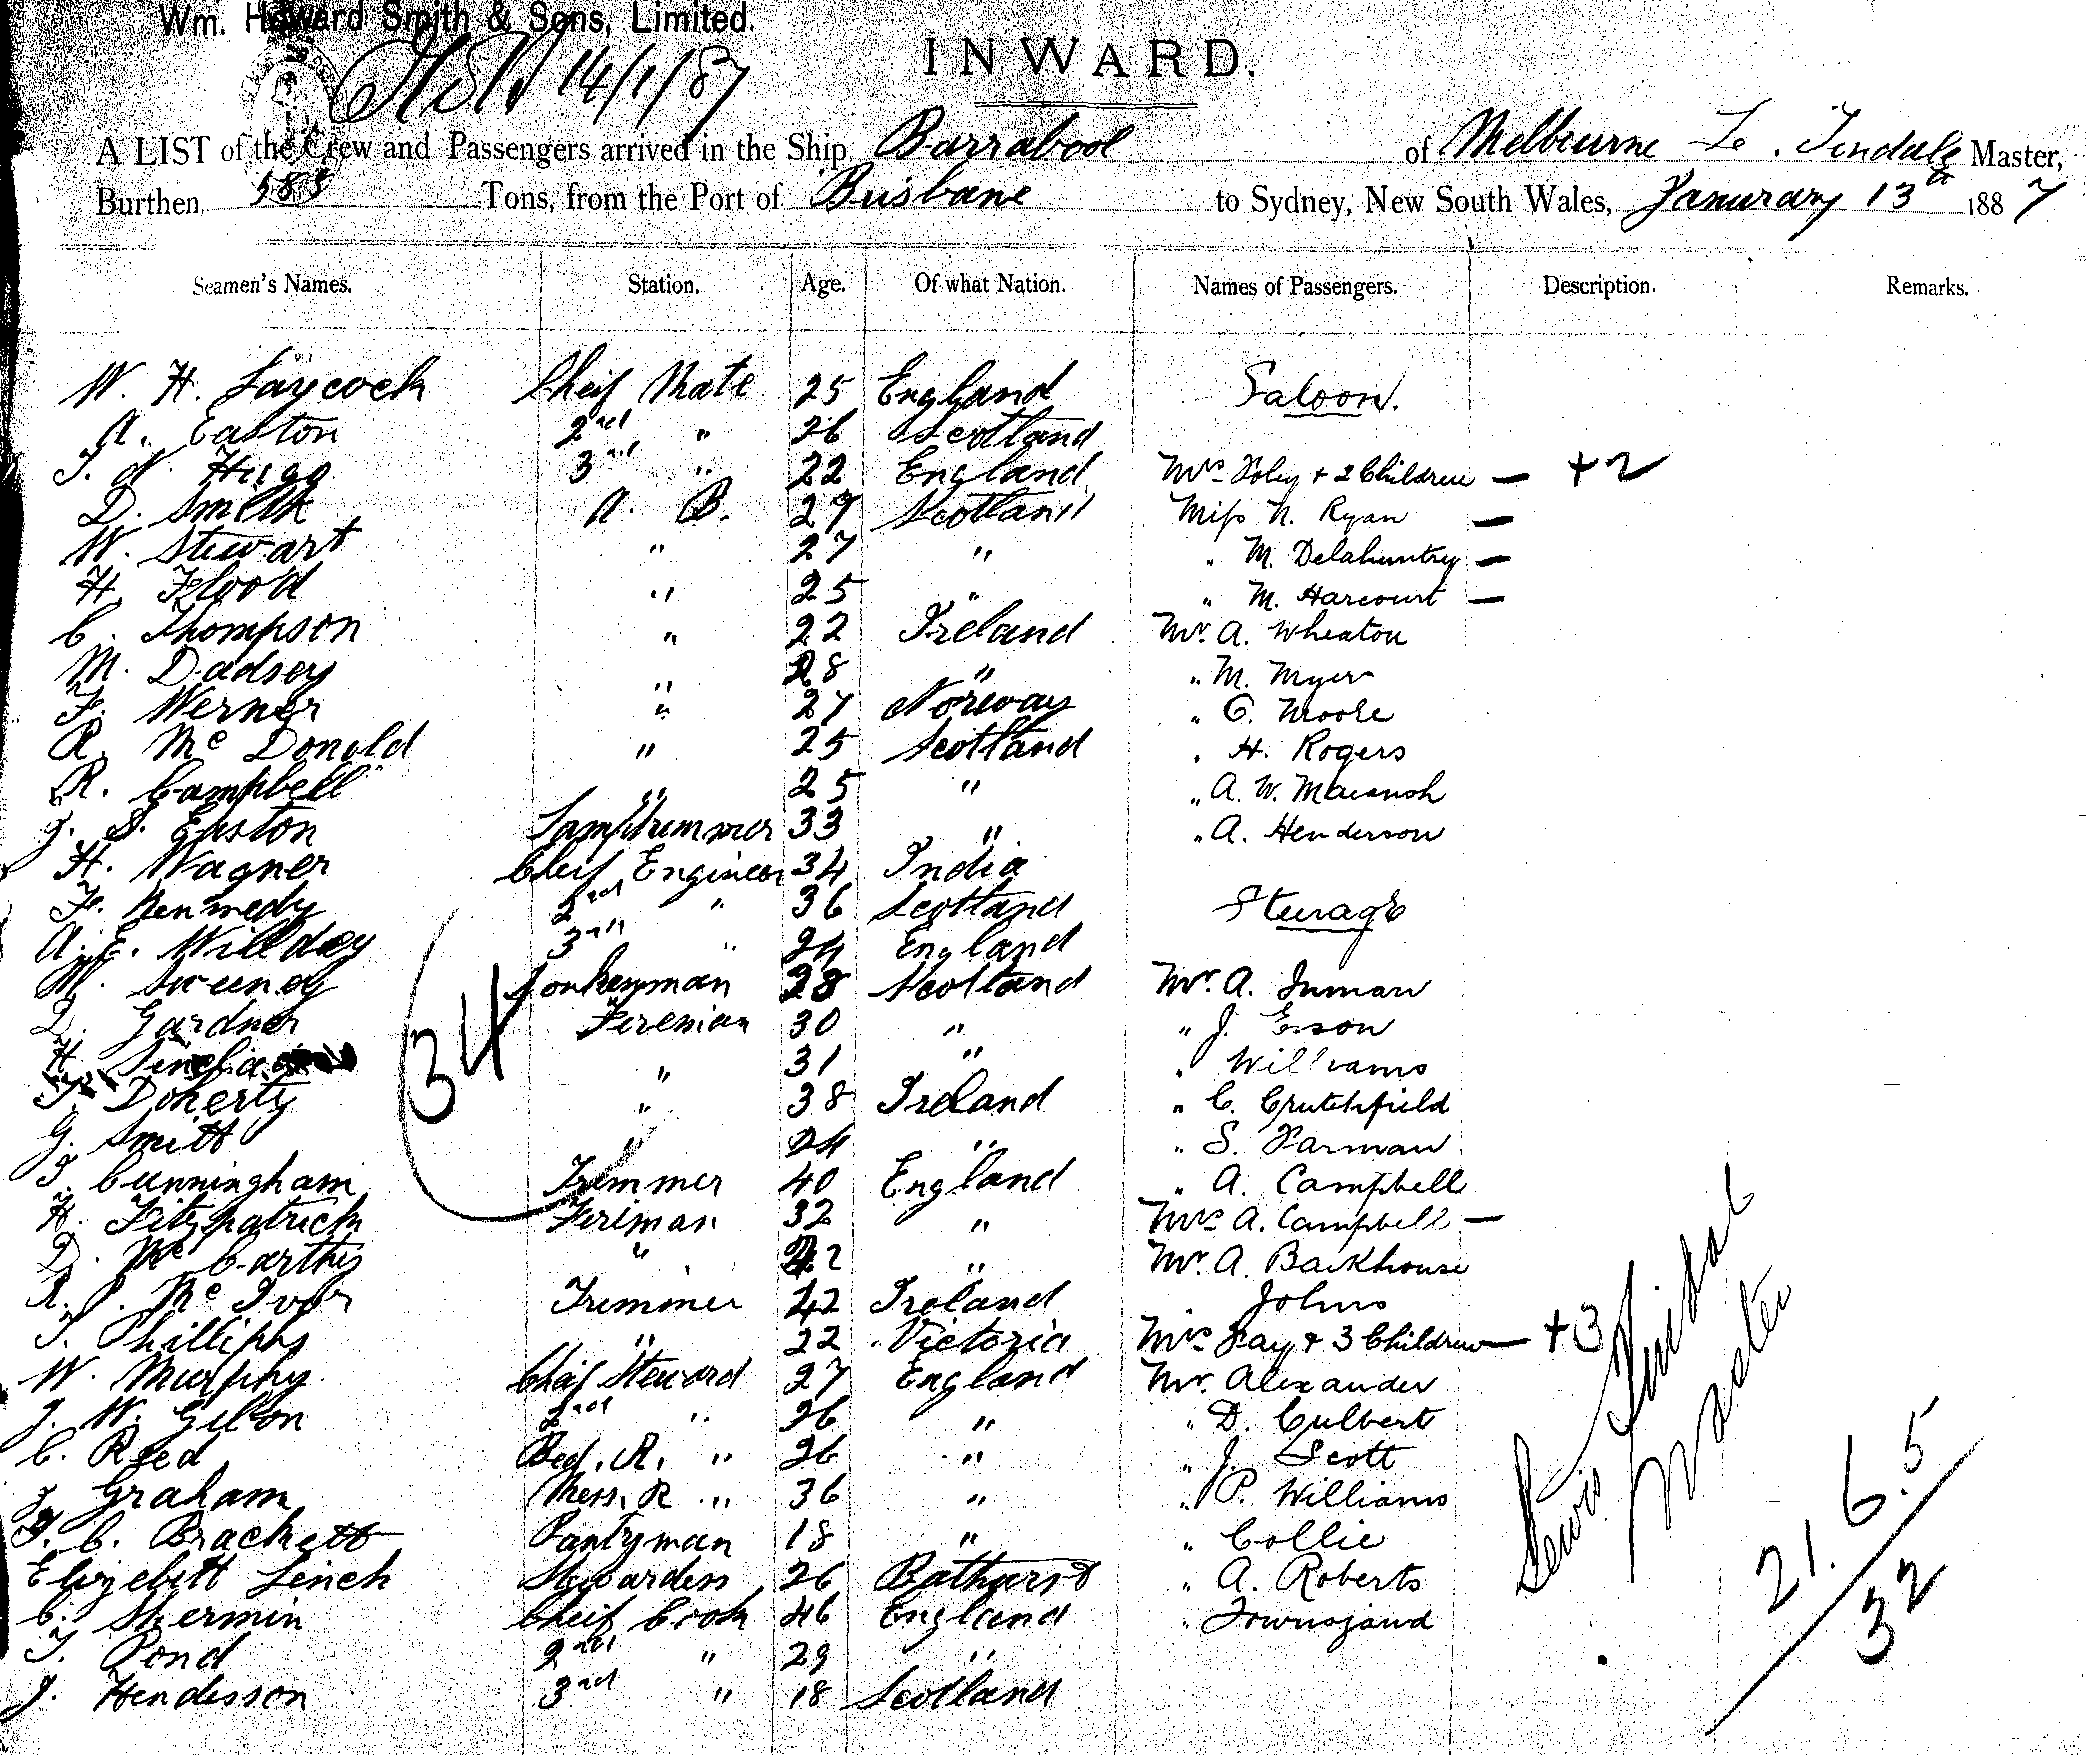 Wm. Howard Smith & Sons, Limited.
14/1/87
INWARD.
A LIST of the Crew and Passengers arrived in the Ship Barrabool of Melbourne L. Tindale Master,
Burthen 583 Tons, from the Port of Brisbane to Sydney, New South Wales, Janurary 13th 1887
Seamen's Names. Station. Age. Of what Nation. Names of Passengers. Description. Remarks.
W. H. Laycock Cheif Mate 25 England Saloon.
A. Easton 2nd " 26 Scotland
T. N. Hugg 3rd " 22 England Mrs Foley + 2 Children — + 2
D. Smith A. B. 27 Scotland Miss N. Ryan —
W. Stewart " 27 " " M. Delahuntry —
H. Flood " 25 " " M. Harcourt —
C. Thompson " 22 Ireland Mr. A. Wheaton
M. Dadsey " 28 " " M. Myers
F. Werner " 27 Norway " C. Moore
R. Mc Donald " 25 Scotland " H. Rogers
R. Campbell " 25 " " A. W. Macansh
J. S. Easton Lamptrimmer 33 " " A. Henderson
H. Wagner Cheif Engineer 34 India
F. Kennedy 2nd " 36 Scotland Sturage
A. E. Willdey 3rd " 24 England
M. Sweeney Donkeyman 28 Scotland Mr. A. Inman
D. Gardner Fireman 30 " " J. Esson
H. Sinclair " 31 " " Williams
T. Doherty " 38 Ireland " C. Crutchfield
G. Smith " 24 " " S. Farman
T. Cunningham Trimmer 40 England " A. Campbell
H. Fitzpatrick Firiman 32 " Mrs A. Campbell —
D. Mc Carthy " 42 " Mr. A. Backhouse
R. J. Mc Ivor Trimmer 42 Ireland " Johns
T. Phillipps " 22 Victoria Mrs Fay + 3 Children — + 3
W. Murphy Cheif Steward 27 England Mr. Alexander
J. W. Gibson 2nd " 26 " " D. Culbert
C. Reed Bed. R. " 26 " " J. Scott
J. Graham Mess. R " 36 " " P. Williams
F. C. Brackett Pantryman 18 " " Collie
Elizebett Linch Stewardess 26 Bathurst " A. Roberts
C. Shermin Cheif Cook 46 England " Townsjand
T. Pond 2nd " 29 "
J. Hendesson 3rd " 18 Scotland
34
Lewis Tindal
Master
21. 6. 5
32